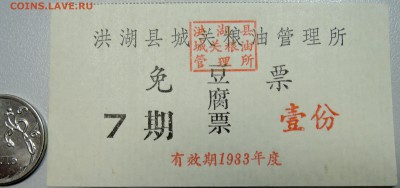 COINS.SU
洪湖县城关粮油管理所
洪湖县
城关粮油
管理所
免豆腐票票
7期
壹份
有效期1983年度